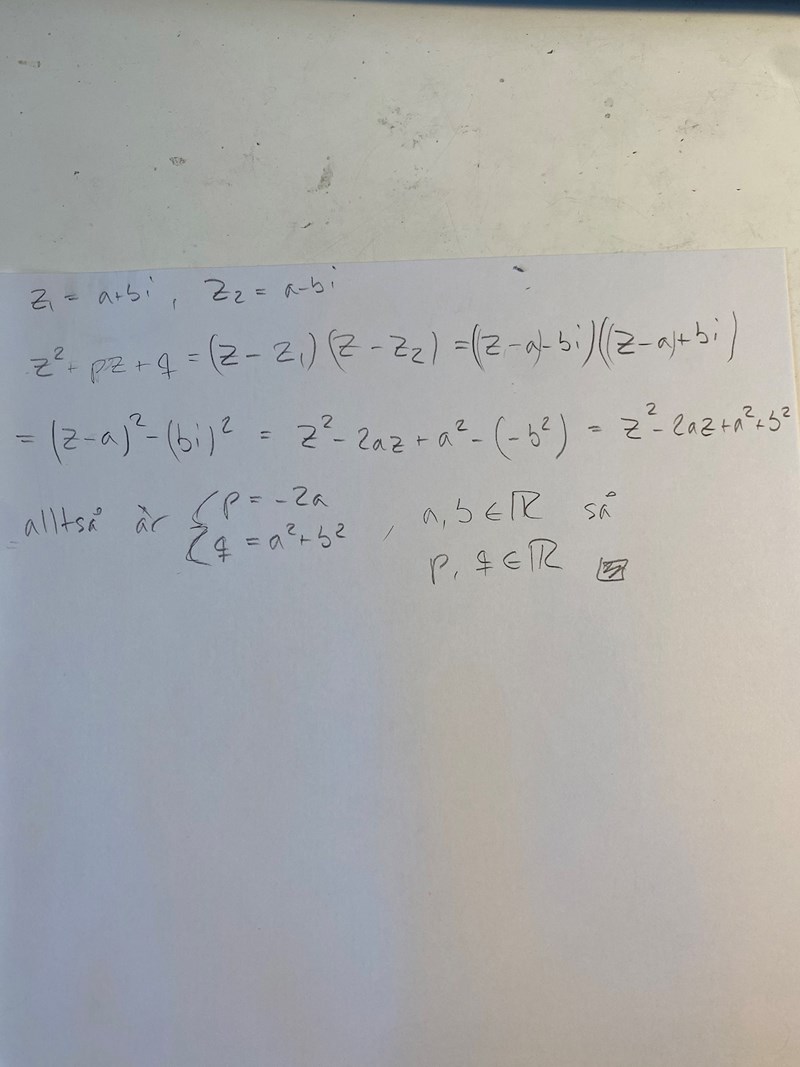 z₁ = a+bi, z₂ = a-bi
z² + pz + q = (z - z₁)(z - z₂) = ((z-a)-bi)((z-a)+bi)
= (z-a)² - (bi)² = z² - 2az + a² - (-b²) = z² - 2az + a² + b²
alltså är { p = -2a , a, b ∈ ℝ så
{ q = a² + b² p, q ∈ ℝ